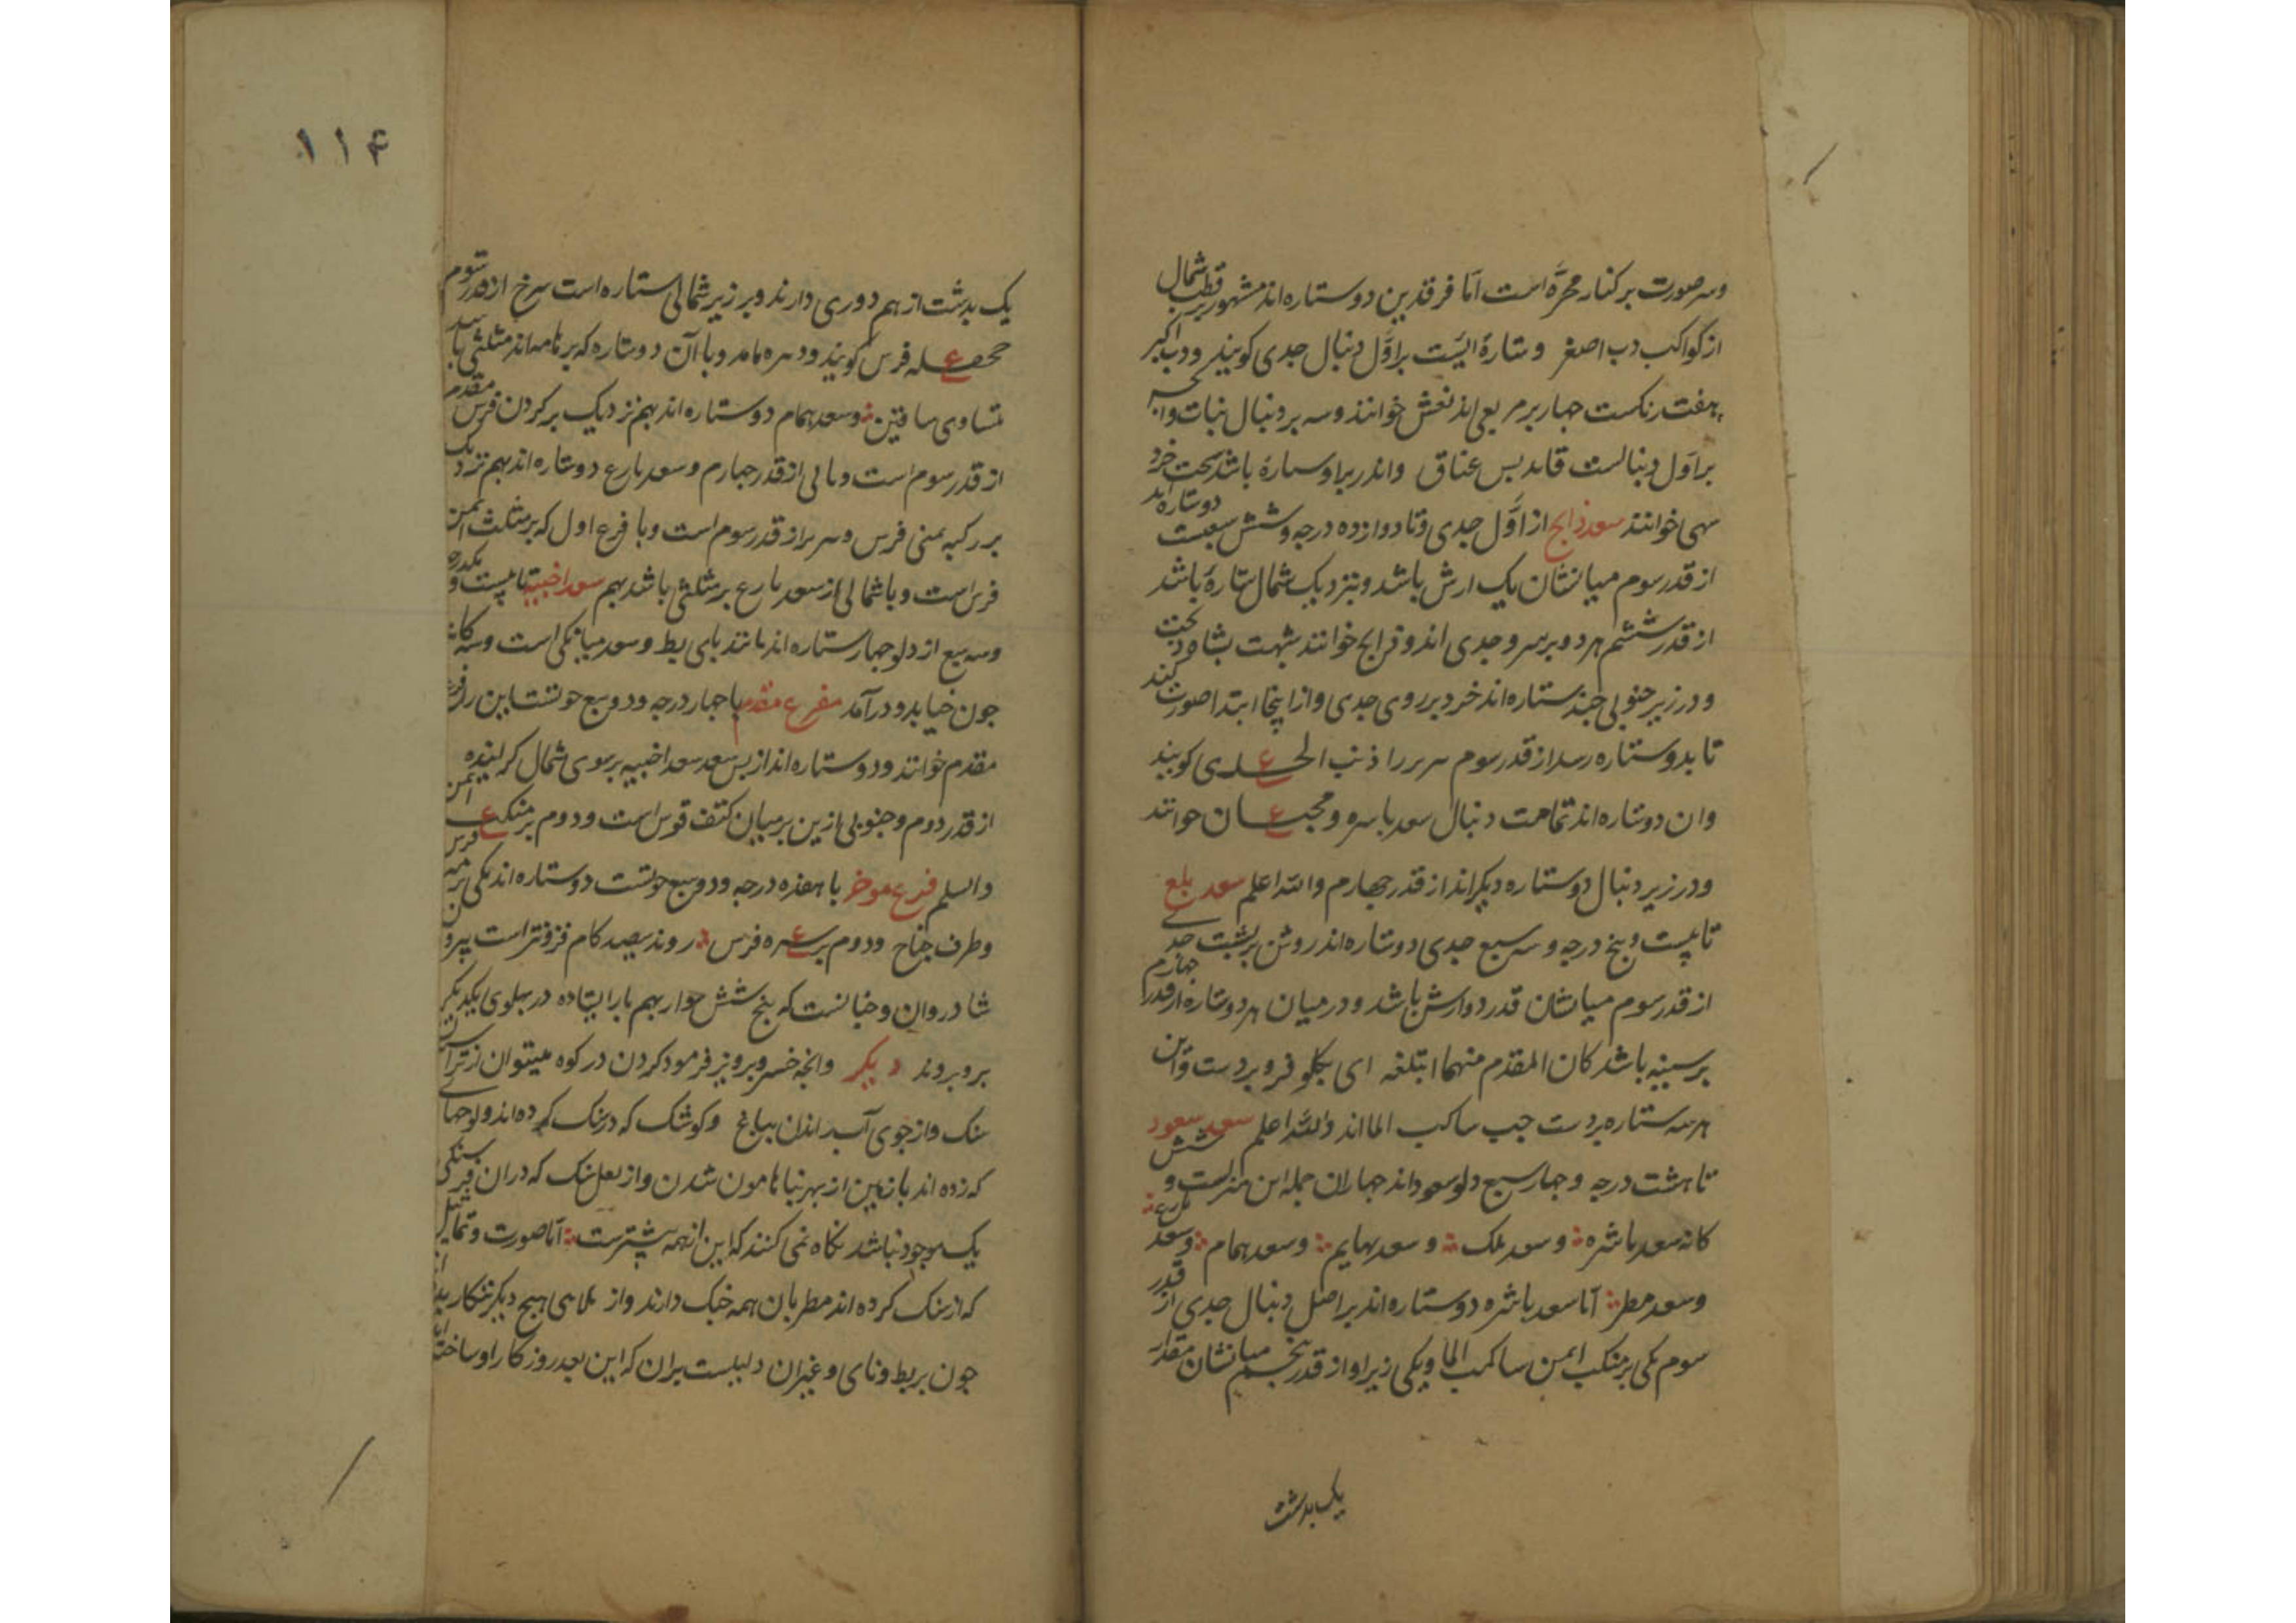 وسر صورت بر کنار مجره است اما فرقدین دو ستاره اند مشهور بر قطب شمال
از کواکب دب اصغر و ستارهٔ ایست بر اول دنبال جدی کویند و دب اکبر
هفت رنکست جهار بر مربعی اند نعش خوانند وسه بر دنبال بنات و انچه
بر اول دنبالست قاید بس عناق واندر براو ستارهٔ باشد سخت خرد
سهی خوانند سعد ذابح از اول جدی و تا دوازده درجه و شش سبعت دو ستاره اند
از قدر سوم میانشان یک ارش باشد و بنزدیک شمال ستارهٔ باشد
از قدر ششم هر دو بر سرو جدی اند و ذابح خوانند بشهت بشاه
و در زیر جنوبی جند ستاره اند خرد بر روی جدی و از اینجا ابتدا صورت کند
تا بدو ستاره رسد از قدر سوم سربر را ذنب الجدی کویند
وان دو ستاره اند تمامت دنبال سعد باسره و محبان خوانند
و در زیر دنبال دو ستاره دیکر اند از قدر جهارم والله اعلم سعد بلع
تا بیست و بنج درجه و سه سبع جدی دو ستاره اند روشن بر بشت جدی
از قدر سوم میانشان قدر دو ارش باشد و در میان هر دو ستاره از قدر جهارم
بر سینه باشد کان المقدم منهما ابتلعه ای بکلو فرو بردست و این
هر سه ستاره بردست جب ساکب الما اند والله اعلم سعد سعود
تا هشت درجه و جهار سبع دلو سعود اند جهاران جمله این منزلست و شش
کانه سعد ناشره و سعد ملک و سعد بهایم و سعد همام و سعد بارع
و سعد مطر اما سعد ناشره دو ستاره اند بر اصل دنبال جدی از قدر
سوم یکی بر منکب ایمن ساکب الما و یکی زیر او از قدر بنجم میانشان مقدار
یک بدشت
۱۱۴
یک بدشت از هم دوری دارند و بر زیر شمالی ستاره است سرخ از قدر سوم
جحفله فرس کویند و با آن دو ستاره که بر اند مثلثی
متساوی ساقین و سعد همام دو ستاره اند بهم نزدیک بر کردن فرس مقدم
از قدر سوم است و مالی از قدر جهارم و سعد بارع دو ستاره اند بهم نزدیک
بر رکبه یمنی فرس و سربر از قدر سوم است و با فرع اول که بر مثلث ایمن
فرس است و با شمالی از سعد بارع بر مثلثی باشد بهم سعد اخبیه تا بیست و یکدرجه
وسه سبع از دلو جهار ستاره اند مانند بای بط و سعد میانکی است وسه کانه
جون خیا بدو در آمد مفرع مقدم با جهار درجه و دو سبع حوتست این را فرع
مقدم خوانند و دو ستاره اند از بس سعد سعد اخبیه بر سوی شمال کراینده
از قدر دوم و جنوبی ازین بر میان کتف قوس است و دوم بر منکب ایمن فرس
والسلم فرع موخر با هفده درجه و دو سبع حوتست دو ستاره اند یکی بر متن
و طرف جناح و دوم بر سره فرس روند بیصد کام فزفتر است بیرون
شادروان و خیانست که بنج شش سوار بهم بار ایستاده در بهلوی یکدیکر
بر و بروند دیکر وانچه خسرو برویز فرمود کردن در کوه بیستون از تراشیدن
سنک و از جوی آب اندان بباغ و کوشک که در سنک کرده اند و لوحهای
که زده اند با زمین از بهر بنا هامون شدن و از نعل سنک که دران فرسنکی
یک موجود نباشد نکاه نمی کنند که این از همه بیشترست اما صورت و تماثیل
که از سنک کرده اند مطربان همه خبک دارند و از ملاهی هیج دیکر ننکاریده اند
جون بربط و نای و غیر ان دلیلست بران که این بعد روزکار او ساخته اند